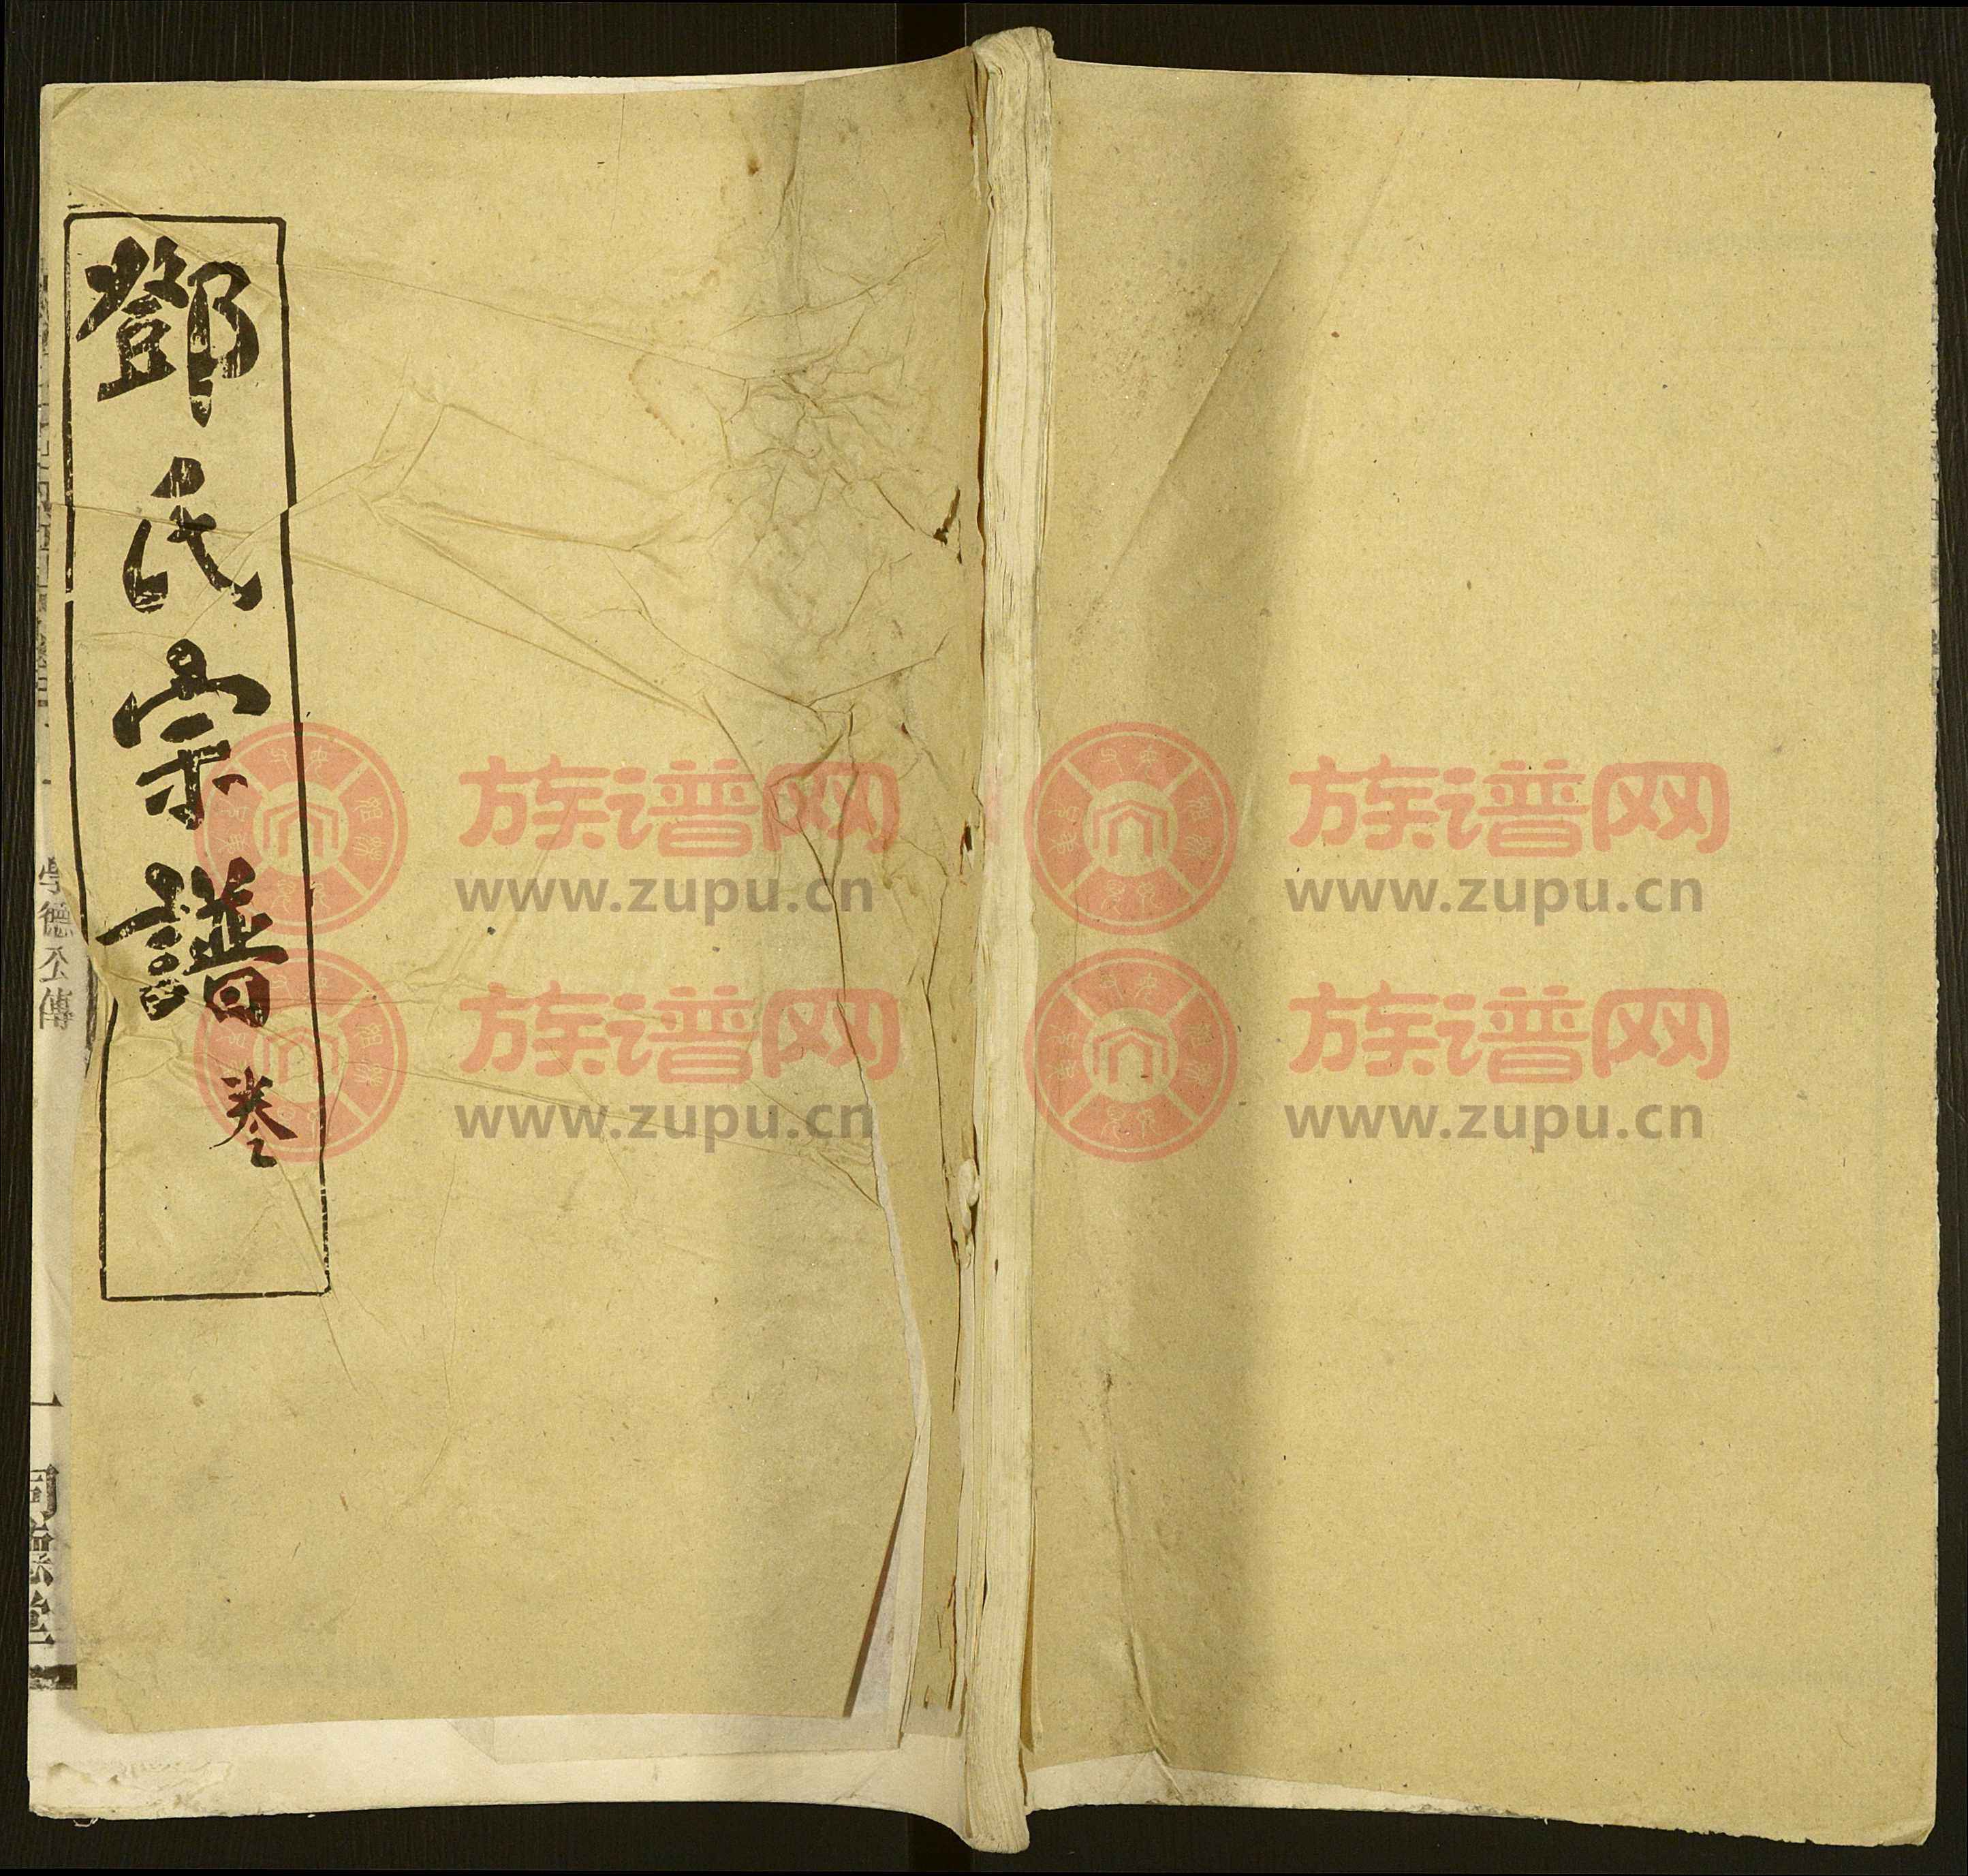 鄧氏宗譜
卷之
德公傳
一
同德堂
族谱网
www.zupu.cn
族谱网
www.zupu.cn
族谱网
www.zupu.cn
族谱网
www.zupu.cn